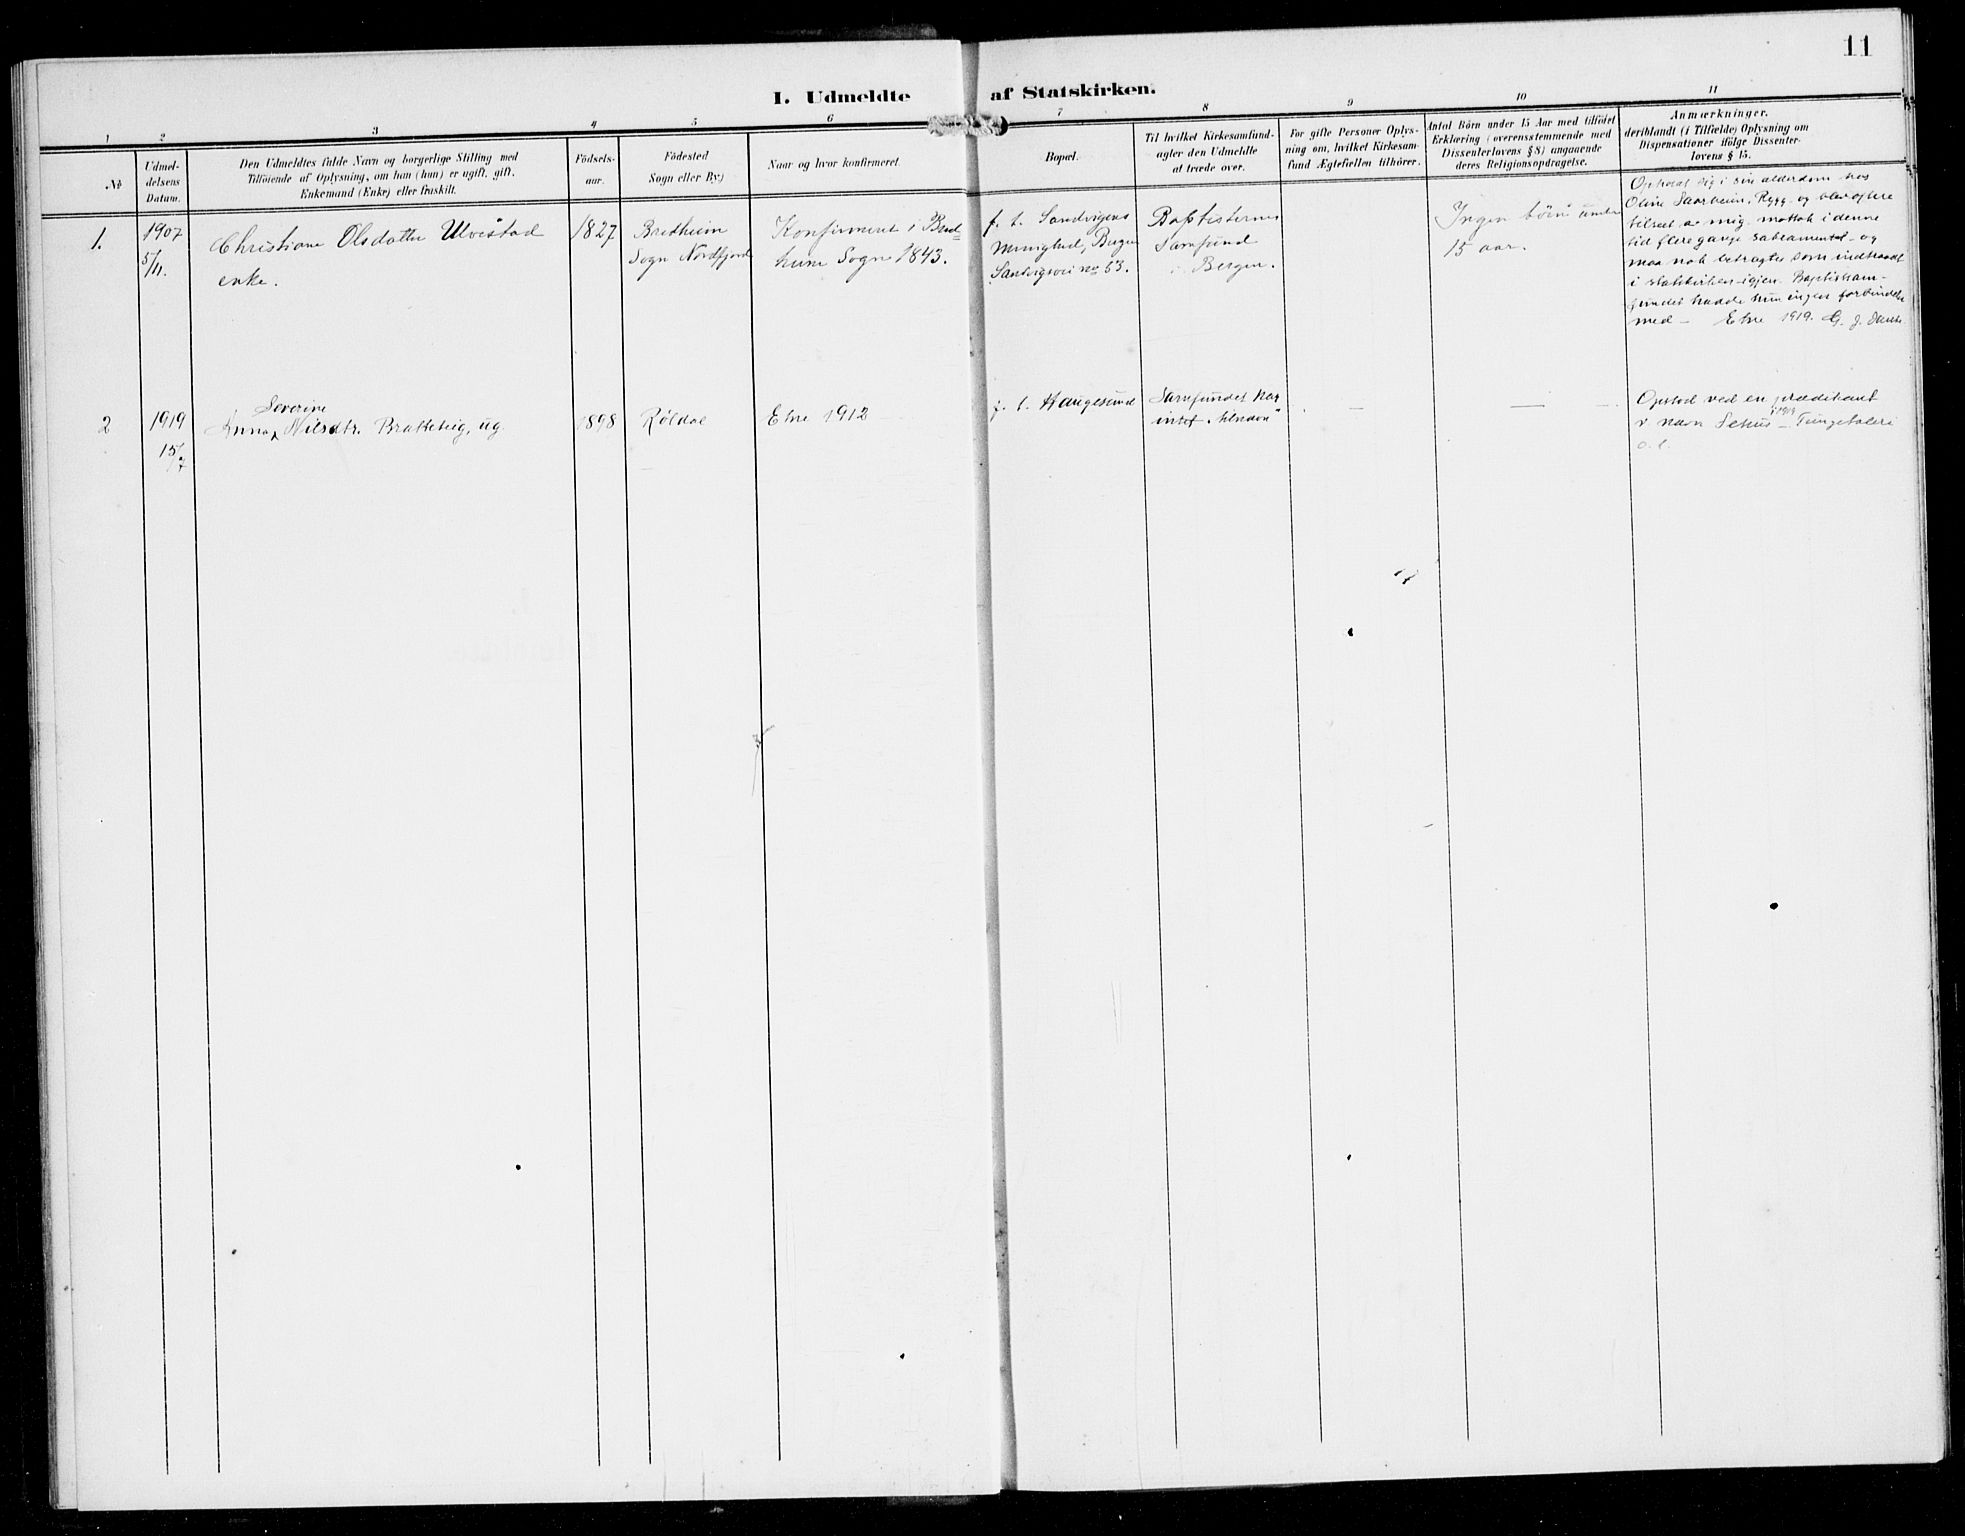 11
I. Udmeldte af Statskirken.
1 2 3 4 5 6 7 8 9 10 11
№
Udmel-
delsens
Datum.
Den Udmeldtes fulde Navn og borgerlige Stilling med
Tilföiende af Oplysning, om han (hun) er ugift, gift,
Enkemand (Enke) eller fraskilt.
Födsels-
aar.
Födested
Sogn eller By)
Naar og hvor konfirmeret.
Bopæl.
Til hvilket Kirkesamfund-
agter den Udmeldte
at træde over.
For gifte Personer Oplys-
ning om, hvilket Kirkesam-
fund Ægtefællen tilhörer.
Antal Börn under 15 Aar med tilföiet
Erklæring (overensstemmende med
Dissenterlovens § 8) angaaende
deres Religionsopdragelse.
Anmærkninger,
deriblandt (i Tilfælde) Oplysning om
Dispensationer ifölge Dissenter-
lovens § 15.
1.
1907
5/11.
Christiane Olsdatter Ulvestad
enke.
1827
Bredheim
Sogn Nordfjord
Konfirmeret i Bred-
heim Sogn 1843.
f. t. Sandvigens
Menighed, Bergen
Sandvigsvei no 63.
Baptisternes
Samfund
i Bergen.
Ingen börn under
15 aar.
Opholdt sig i sin alderdom hos
Oline Skarheim, Rygg og blev oftere
tilseet av mig, mottok i denne
tid flere gange sakramentet og
maa nok betragtes som indtraadt
i statskirken igjen. Baptistsam-
fundet hadde hun ingen forbindelse
med – Etne 1919. G. J.
2
1919
15/7
Severine
Anna Nilsdtr. Bratteteig, ug.
1898
Röldal
Etne 1912
f. t. Haugesund
Samfundet har
intet
–
–
Opstod ved en prædikant
v navn 1919 – Tungetaleri
o. l.